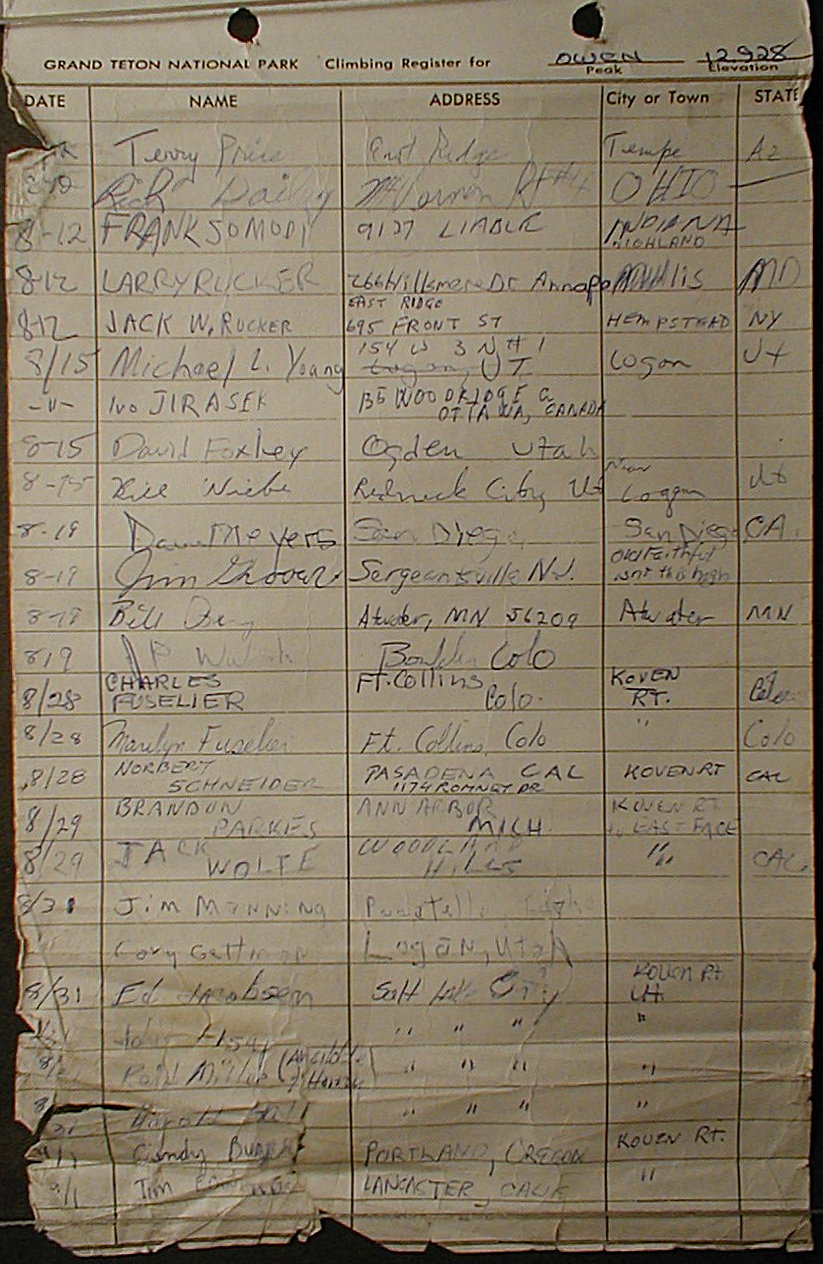 OWEN 12,928
GRAND TETON NATIONAL PARK Climbing Register for Peak Elevation
DATE NAME ADDRESS City or Town STATE
Terry Price East Ridge Tempe Az
Rick Dailey Rt #4 OHIO
8-12 FRANK SOMODI 9137 LIABLE INDIANA
HIGHLAND
8-12 LARRY RUCKER 266 Hillsmere Dr Annapolis MD
EAST RIDGE
8-12 JACK W. RUCKER 695 FRONT ST HEMPSTEAD NY
8/15 Michael L. Young 154 W 3 N # 1 Logan Ut
Logan, UT
-"- Ivo JIRASEK WOODRIDGE
OTTAWA, CANADA
8-15 David Foxley Ogden Utah
near
8-15 Redneck City Ut Loggan Ut
8-19 Dave Meyers San Diego San Diego CA.
8-19 Jim Sergeantsville N.J. Old Faithful
isnt this high
8-19 Bill Atwater, MN 56209 Atwater MN
8/19 JP Walsh Boulder Colo
8/28 CHARLES FT. Collins KOVEN
FUSELIER Colo. RT. Colo
8/28 Marilyn Fuselier Ft. Collins, Colo " Colo
8/28 NORBERT PASADENA CAL KOVEN RT CAL
SCHNEIDER 1174 ROMNEY DR
8/29 BRANDON ANN ARBOR KOVEN RT
PARKES MICH EAST FACE
8/29 JACK WOODLAND " CAL.
WOLFE HILLS
8/31 Jim Manning Pocatello Idaho
Cory Logan, Utah
8/31 Ed Jacobsen Salt Lake City Koven Rt
Ut.
John " " " "
8/31 Paul Miller " " " "
8/31 Harold " " " "
9/1 Cindy PORTLAND, OREGON KOVEN RT.
9/1 Tim LANCASTER, CALIF "